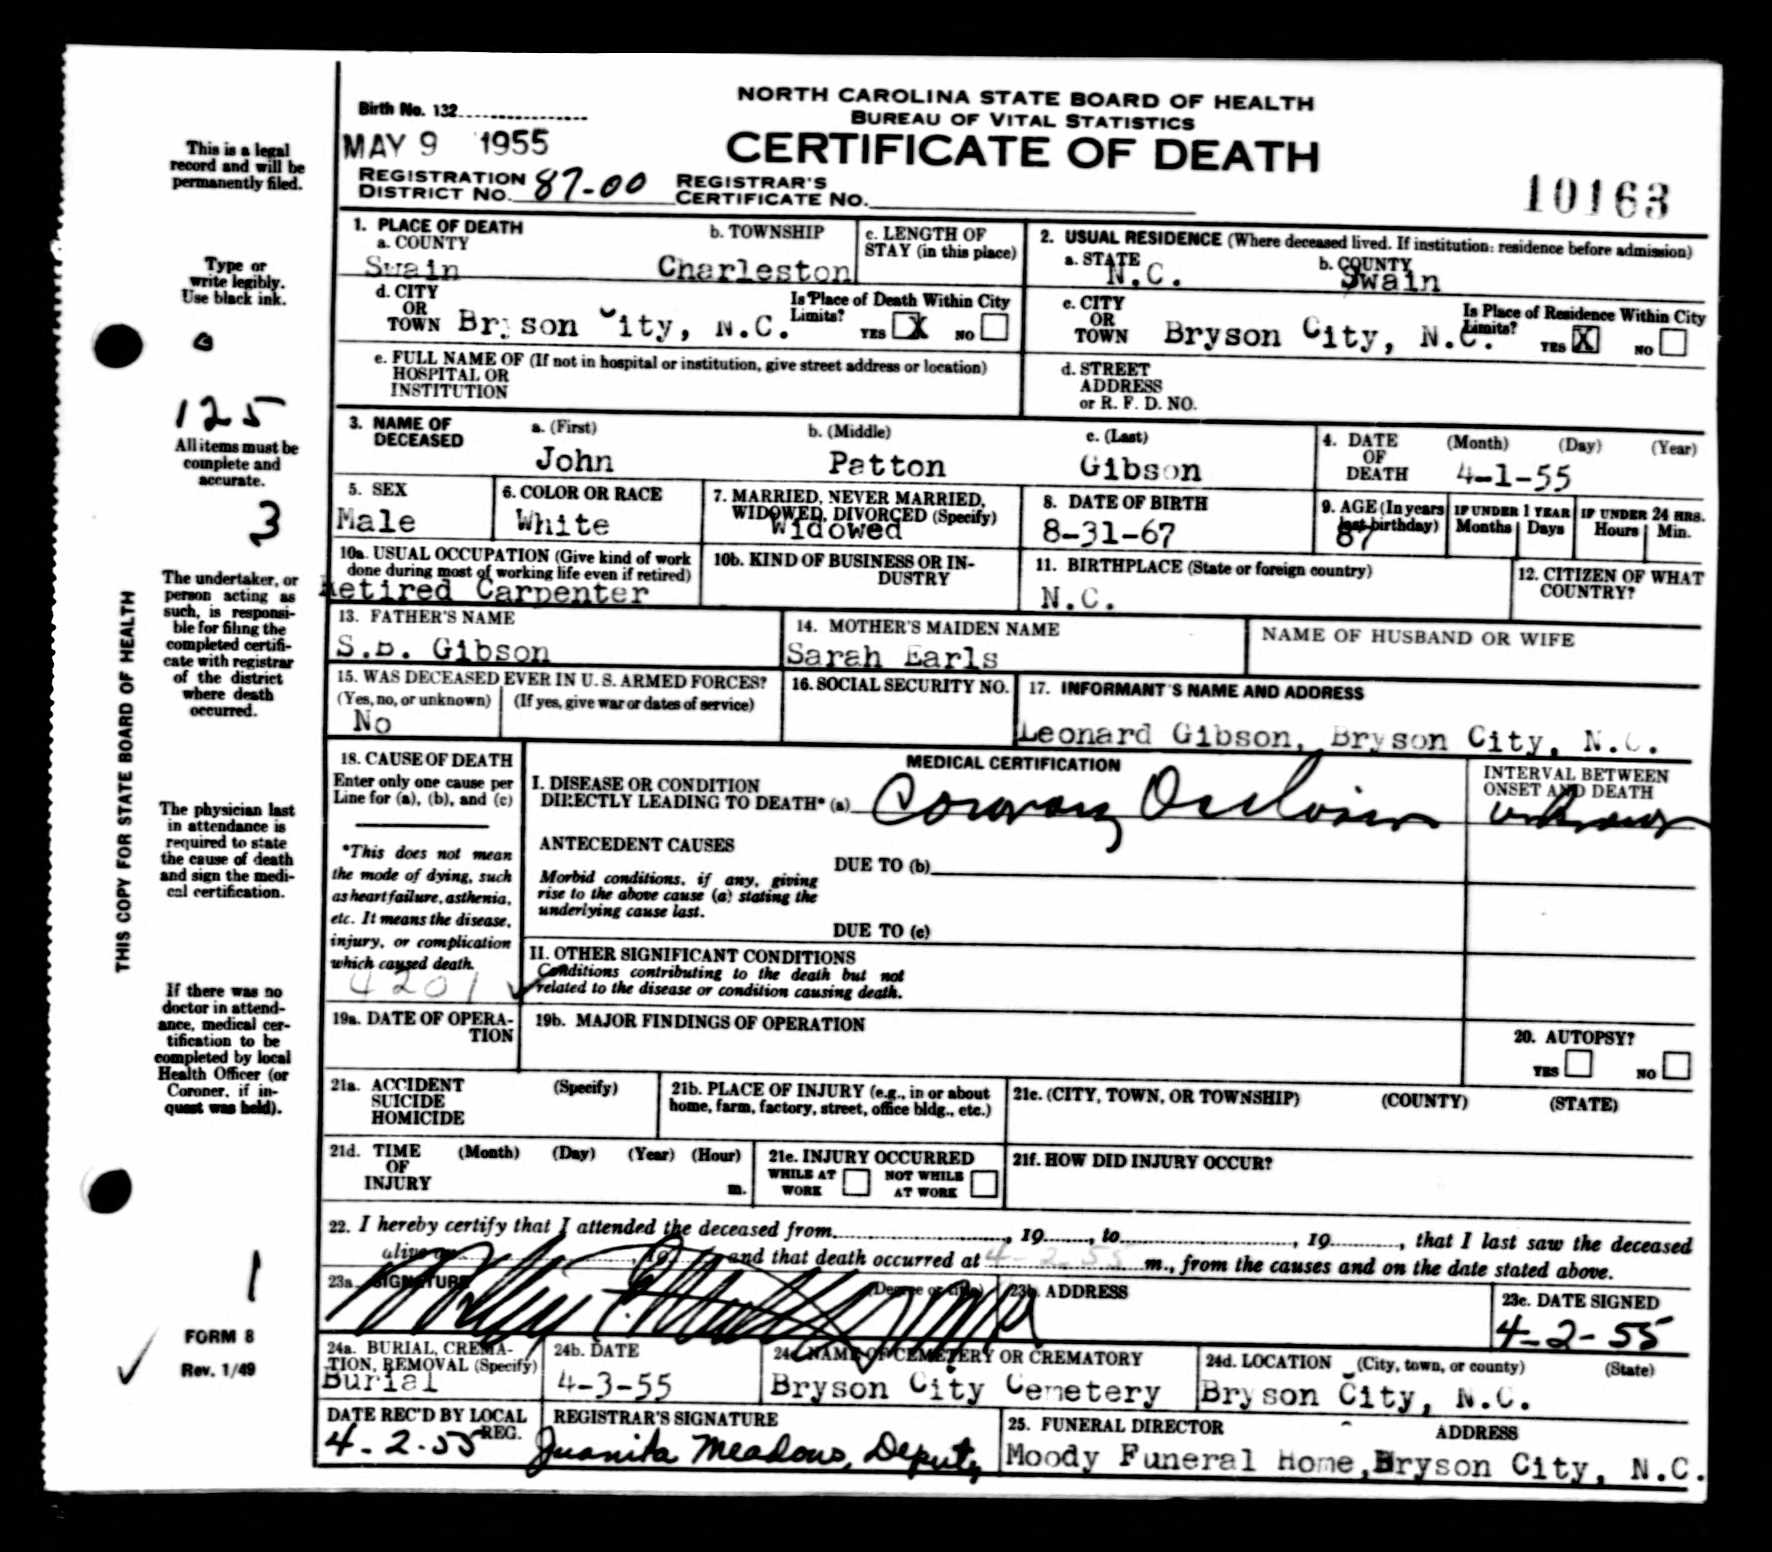 NORTH CAROLINA STATE BOARD OF HEALTH
BUREAU OF VITAL STATISTICS
CERTIFICATE OF DEATH
Birth No. 132
MAY 9 1955
REGISTRATION DISTRICT NO. 87-00 REGISTRAR'S CERTIFICATE NO.
10163
This is a legal
record and will be
permanently filed.
Type or
write legibly.
Use black ink.
125
All items must be
complete and
accurate.
3
The undertaker, or
person acting as
such, is responsi-
ble for filing the
completed certifi-
cate with registrar
of the district
where death
occurred.
The physician last
in attendance is
required to state
the cause of death
and sign the medi-
cal certification.
If there was no
doctor in attend-
ance, medical cer-
tification to be
completed by local
Health Officer (or
Coroner, if in-
quest was held).
1
FORM 8
Rev. 1/49
THIS COPY FOR STATE BOARD OF HEALTH
1. PLACE OF DEATH
a. COUNTY
Swain
b. TOWNSHIP
Charleston
c. LENGTH OF
STAY (in this place)
2. USUAL RESIDENCE (Where deceased lived. If institution: residence before admission)
a. STATE
N.C.
b. COUNTY
Swain
d. CITY
OR
TOWN Bryson City, N.C.
Is Place of Death Within City
Limits? YES X NO
c. CITY
OR
TOWN Bryson City, N.C.
Is Place of Residence Within City
Limits? YES X NO
e. FULL NAME OF (If not in hospital or institution, give street address or location)
HOSPITAL OR
INSTITUTION
d. STREET
ADDRESS
or R. F. D. NO.
3. NAME OF
DECEASED
a. (First)
John
b. (Middle)
Patton
c. (Last)
Gibson
4. DATE
OF
DEATH
(Month) (Day) (Year)
4-1-55
5. SEX
Male
6. COLOR OR RACE
White
7. MARRIED, NEVER MARRIED,
WIDOWED, DIVORCED (Specify)
Widowed
8. DATE OF BIRTH
8-31-67
9. AGE (In years
last birthday)
87
IF UNDER 1 YEAR
Months Days
IF UNDER 24 HRS.
Hours Min.
10a. USUAL OCCUPATION (Give kind of work
done during most of working life even if retired)
Retired Carpenter
10b. KIND OF BUSINESS OR IN-
DUSTRY
11. BIRTHPLACE (State or foreign country)
N.C.
12. CITIZEN OF WHAT
COUNTRY?
13. FATHER'S NAME
S.B. Gibson
14. MOTHER'S MAIDEN NAME
Sarah Earls
NAME OF HUSBAND OR WIFE
15. WAS DECEASED EVER IN U. S. ARMED FORCES?
(Yes, no, or unknown) (If yes, give war or dates of service)
No
16. SOCIAL SECURITY NO.
17. INFORMANT'S NAME AND ADDRESS
Leonard Gibson, Bryson City, N.C.
18. CAUSE OF DEATH
Enter only one cause per
Line for (a), (b), and (c)
*This does not mean
the mode of dying, such
as heart failure, asthenia,
etc. It means the disease,
injury, or complication
which caused death.
4201
MEDICAL CERTIFICATION
I. DISEASE OR CONDITION
DIRECTLY LEADING TO DEATH* (a) Coronary Occlusion
INTERVAL BETWEEN
ONSET AND DEATH
unknown
ANTECEDENT CAUSES
DUE TO (b)
Morbid conditions, if any, giving
rise to the above cause (a) stating the
underlying cause last.
DUE TO (c)
II. OTHER SIGNIFICANT CONDITIONS
Conditions contributing to the death but not
related to the disease or condition causing death.
19a. DATE OF OPERA-
TION
19b. MAJOR FINDINGS OF OPERATION
20. AUTOPSY?
YES NO
21a. ACCIDENT
SUICIDE
HOMICIDE
(Specify)
21b. PLACE OF INJURY (e.g., in or about
home, farm, factory, street, office bldg., etc.)
21c. (CITY, TOWN, OR TOWNSHIP) (COUNTY) (STATE)
21d. TIME
OF
INJURY
(Month) (Day) (Year) (Hour)
m.
21e. INJURY OCCURRED
WHILE AT
WORK
NOT WHILE
AT WORK
21f. HOW DID INJURY OCCUR?
22. I hereby certify that I attended the deceased from, 19, to, 19, that I last saw the deceased
alive on, 19, and that death occurred at 4-2-55 m., from the causes and on the date stated above.
23a. SIGNATURE (Degree or title)
23b. ADDRESS
23c. DATE SIGNED
4-2-55
24a. BURIAL, CREMA-
TION, REMOVAL (Specify)
Burial
24b. DATE
4-3-55
24c. NAME OF CEMETERY OR CREMATORY
Bryson City Cemetery
24d. LOCATION (City, town, or county) (State)
Bryson City, N.C.
DATE REC'D BY LOCAL
REG.
4-2-55
REGISTRAR'S SIGNATURE
Juanita Meadows, Deputy
25. FUNERAL DIRECTOR ADDRESS
Moody Funeral Home, Bryson City, N.C.